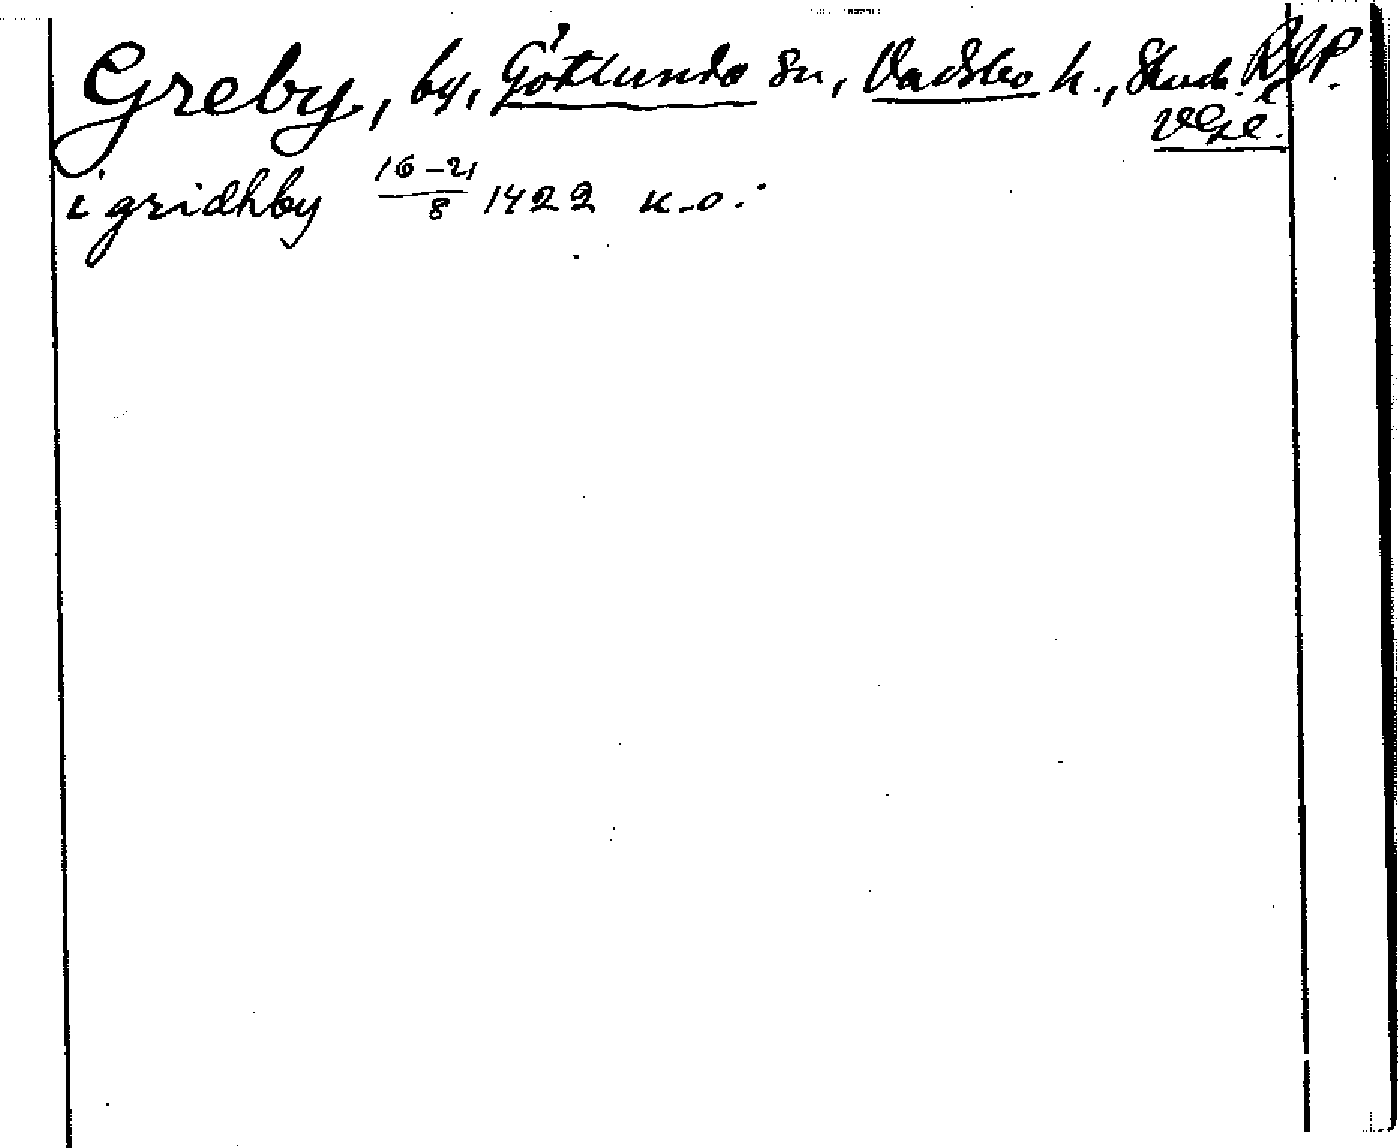 Greby, by, Götlunda sn, Vadsbo h., Skarb.
Vgl.
i gridhby 16-21/8 1422 u.o.